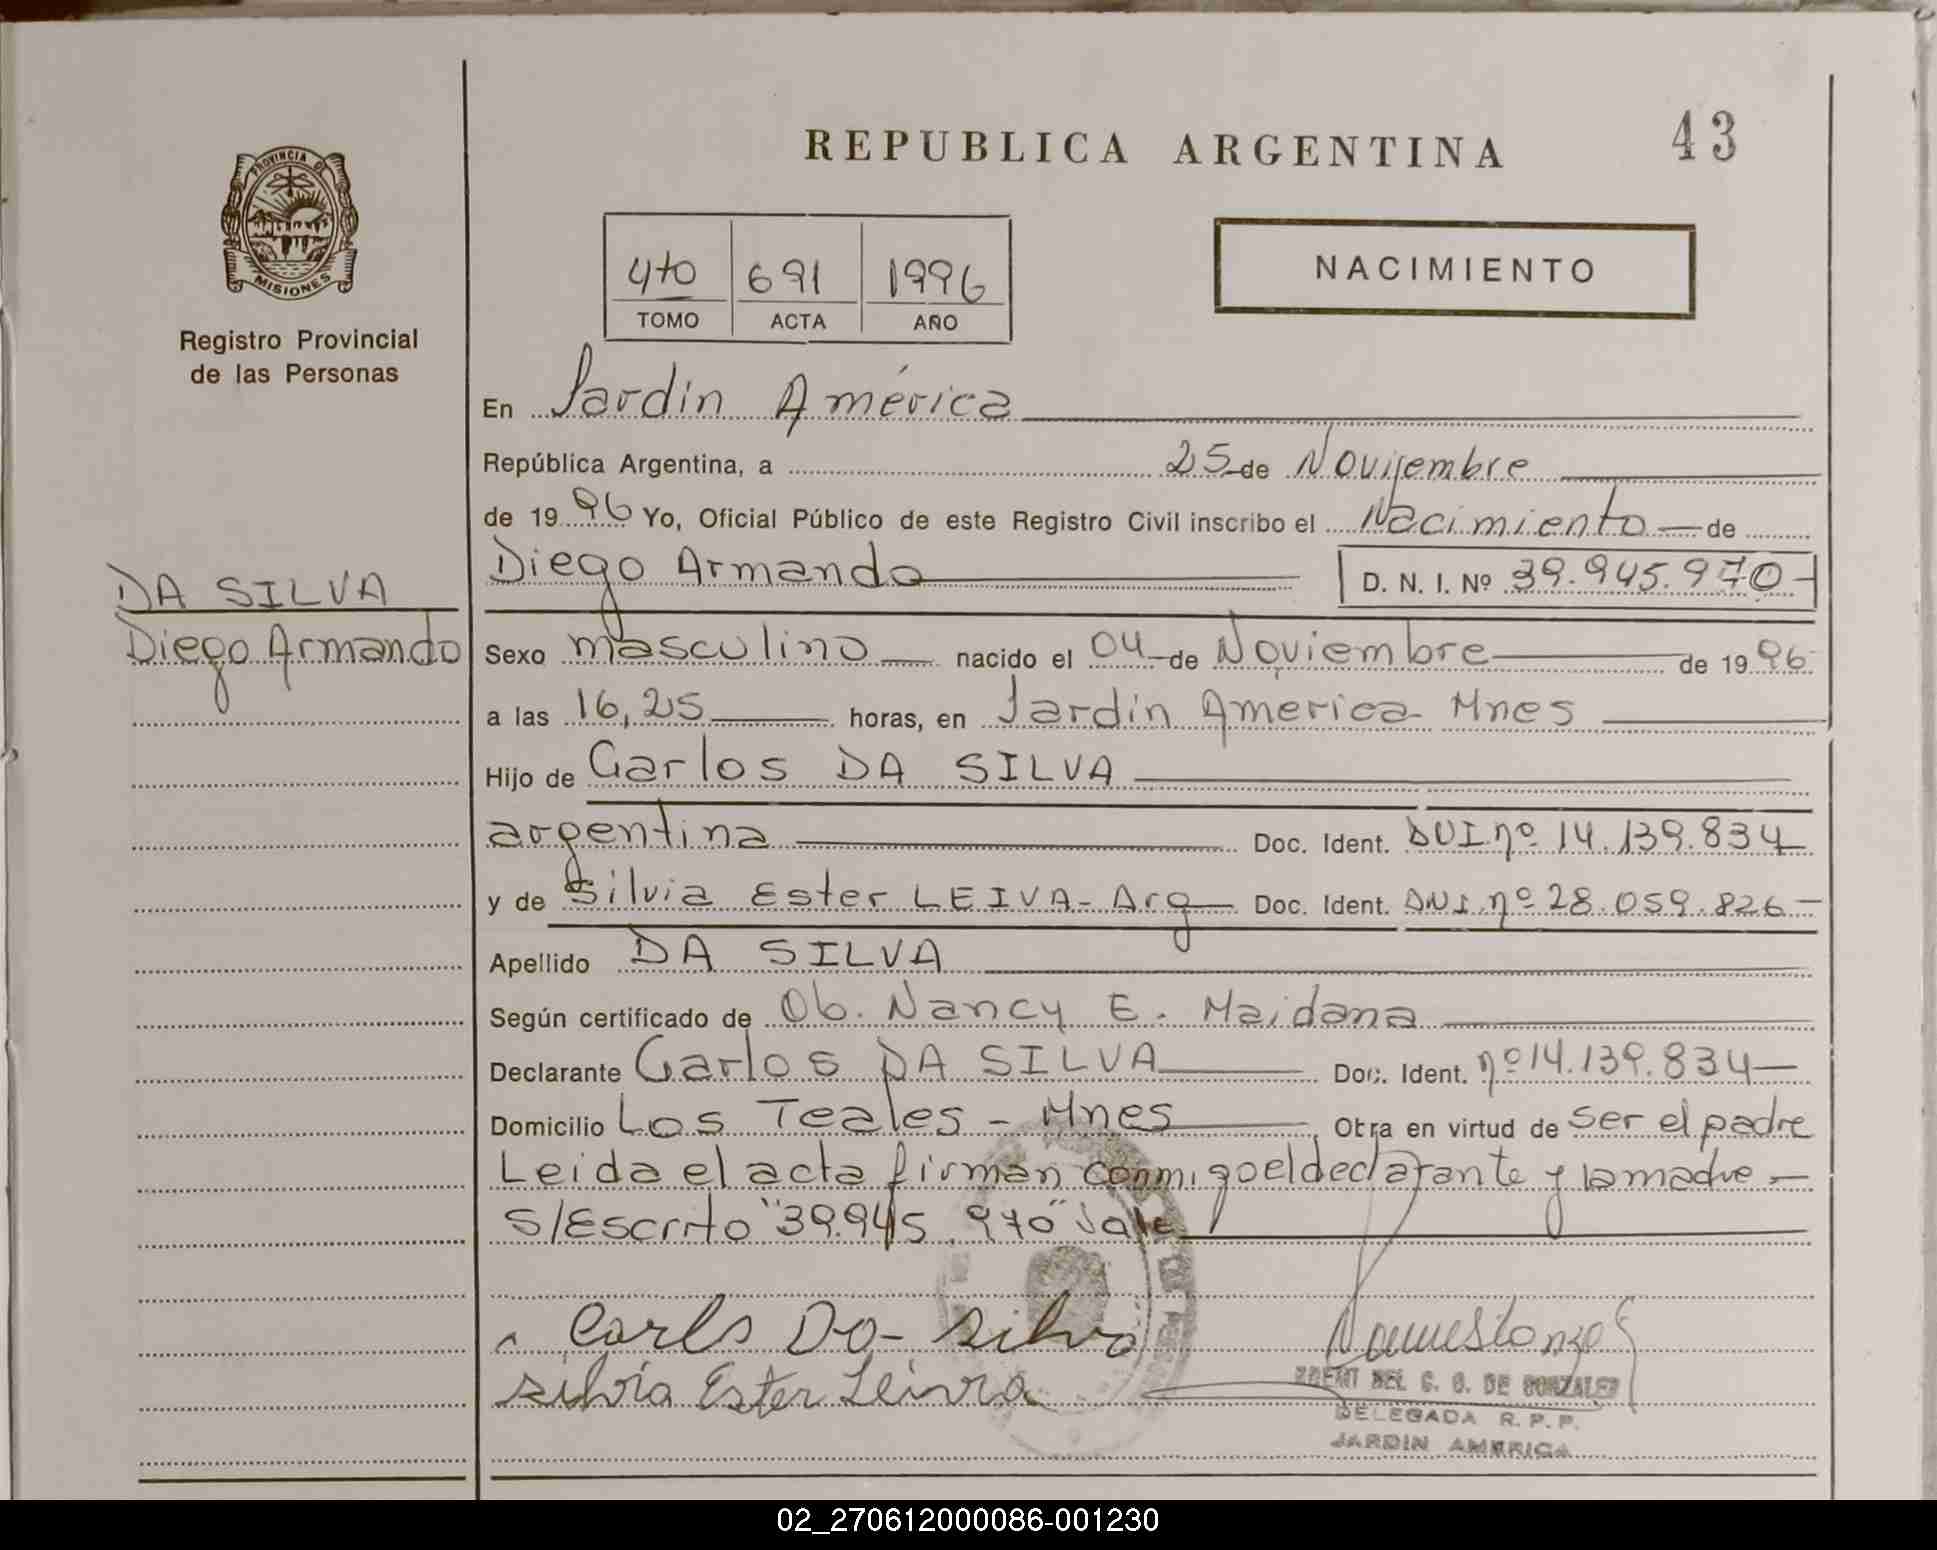 REPUBLICA ARGENTINA
43
PROVINCIA DE
MISIONES
Registro Provincial
de las Personas
4to 691 1996
TOMO ACTA AÑO
NACIMIENTO
En Jardin América
República Argentina, a 25 de Noviembre
de 1996 Yo, Oficial Público de este Registro Civil inscribo el Nacimiento de
Diego Armando D. N. I. Nº 39.945.970
DA SILVA
Diego Armando
Sexo masculino nacido el 04 de Noviembre de 1996
a las 16,25 horas, en Jardin America Mnes
Hijo de Carlos DA SILVA
argentina Doc. Ident. DUI nº 14.139.834
y de Silvia Ester LEIVA - Arg Doc. Ident. DNI nº 28.059.826
Apellido DA SILVA
Según certificado de Ob. Nancy E. Maidana
Declarante Carlos DA SILVA Doc. Ident. nº 14.139.834
Domicilio Los Teales - Mnes Obra en virtud de ser el padre
Leida el acta firman conmigo el declarante y la madre
S/Escrito "39.945.970" Vale
Carls Da silva
silvia Ester Leiva
DEL C. G. DE GONZALEZ
DELEGADA R. P. P.
JARDIN AMERICA
02_270612000086-001230